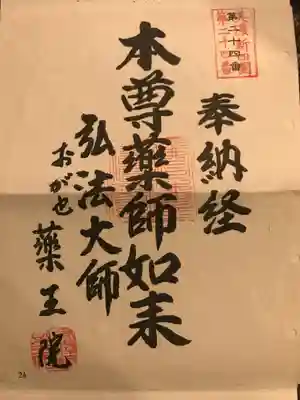 第二十四番
奉納経
本尊薬師如来
弘法大師
おが也
薬王院
26